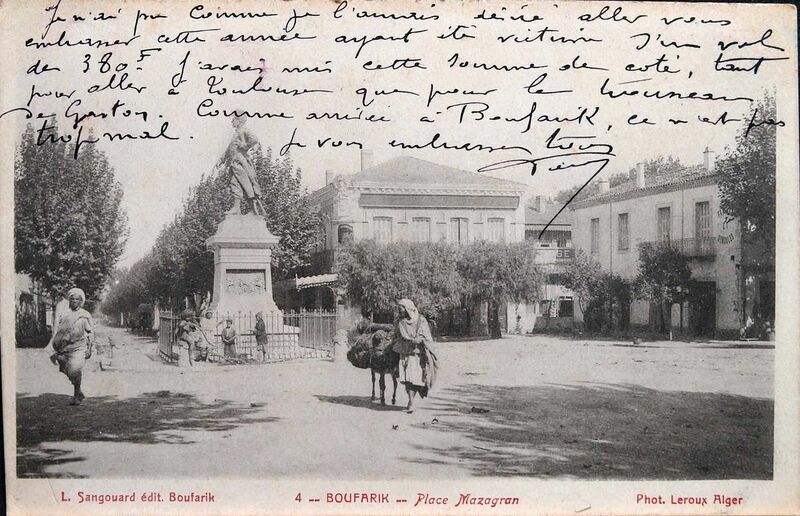 Je n'ai pu comme je l'aurais désiré aller vous
embrasser cette année ayant été victime d'un vol
de 380 F. J'avais mis cette somme de coté, tant
pour aller à Toulouse que pour le trousseau
de Gaston. Comme arrivée à Boufarik, ce n'est pas
trop mal. Je vous embrasse tous
L. Sangouard édit. Boufarik
4 -- BOUFARIK -- Place Mazagran
Phot. Leroux Alger